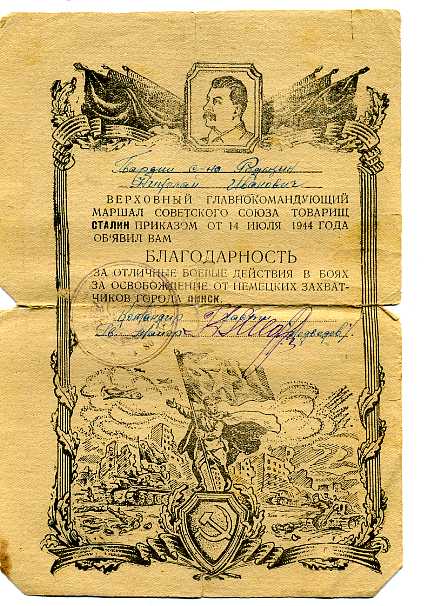 Гвардии с-на
Иванович
ВЕРХОВНЫЙ ГЛАВНОКОМАНДУЮЩИЙ
МАРШАЛ СОВЕТСКОГО СОЮЗА ТОВАРИЩ
СТАЛИН ПРИКАЗОМ ОТ 14 ИЮЛЯ 1944 ГОДА
ОБ'ЯВИЛ ВАМ
БЛАГОДАРНОСТЬ
ЗА ОТЛИЧНЫЕ БОЕВЫЕ ДЕЙСТВИЯ В БОЯХ
ЗА ОСВОБОЖДЕНИЕ ОТ НЕМЕЦКИХ ЗАХВАТ-
ЧИКОВ ГОРОДА ПИНСК.
Командир
Гв. майор